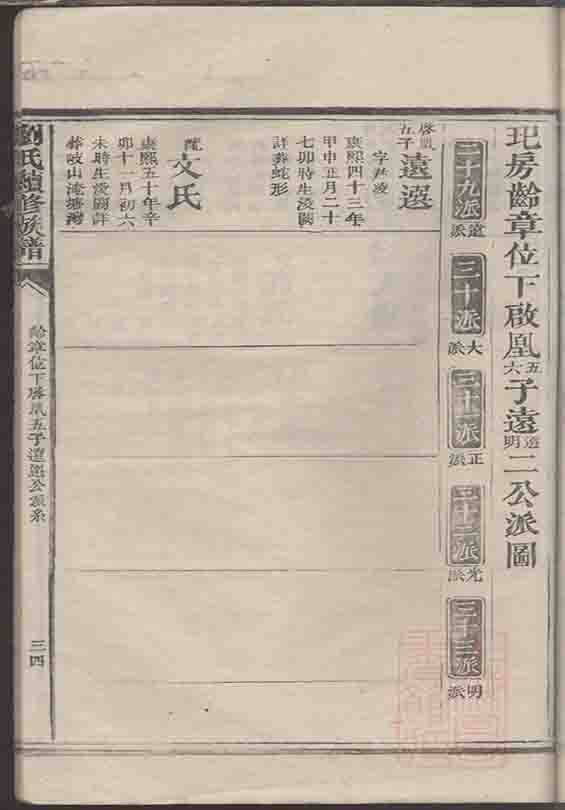 玘房齡章位下啟凰五六子遠選明二公派圖
二十九派
遠派
三十派
大派
三十一派
正派
三十二派
光派
三十三派
明派
啓凰五子
遠選
字尹凌
康熙四十三年
甲申正月二十
七卯時生淩關
詳葬蛇形
文氏
康熙五十年辛
卯十一月初六
未時生淩關詳
葬岐山淹塘灣
劉氏續修族譜
齡章位下啓凰五子遠選公派系
三四